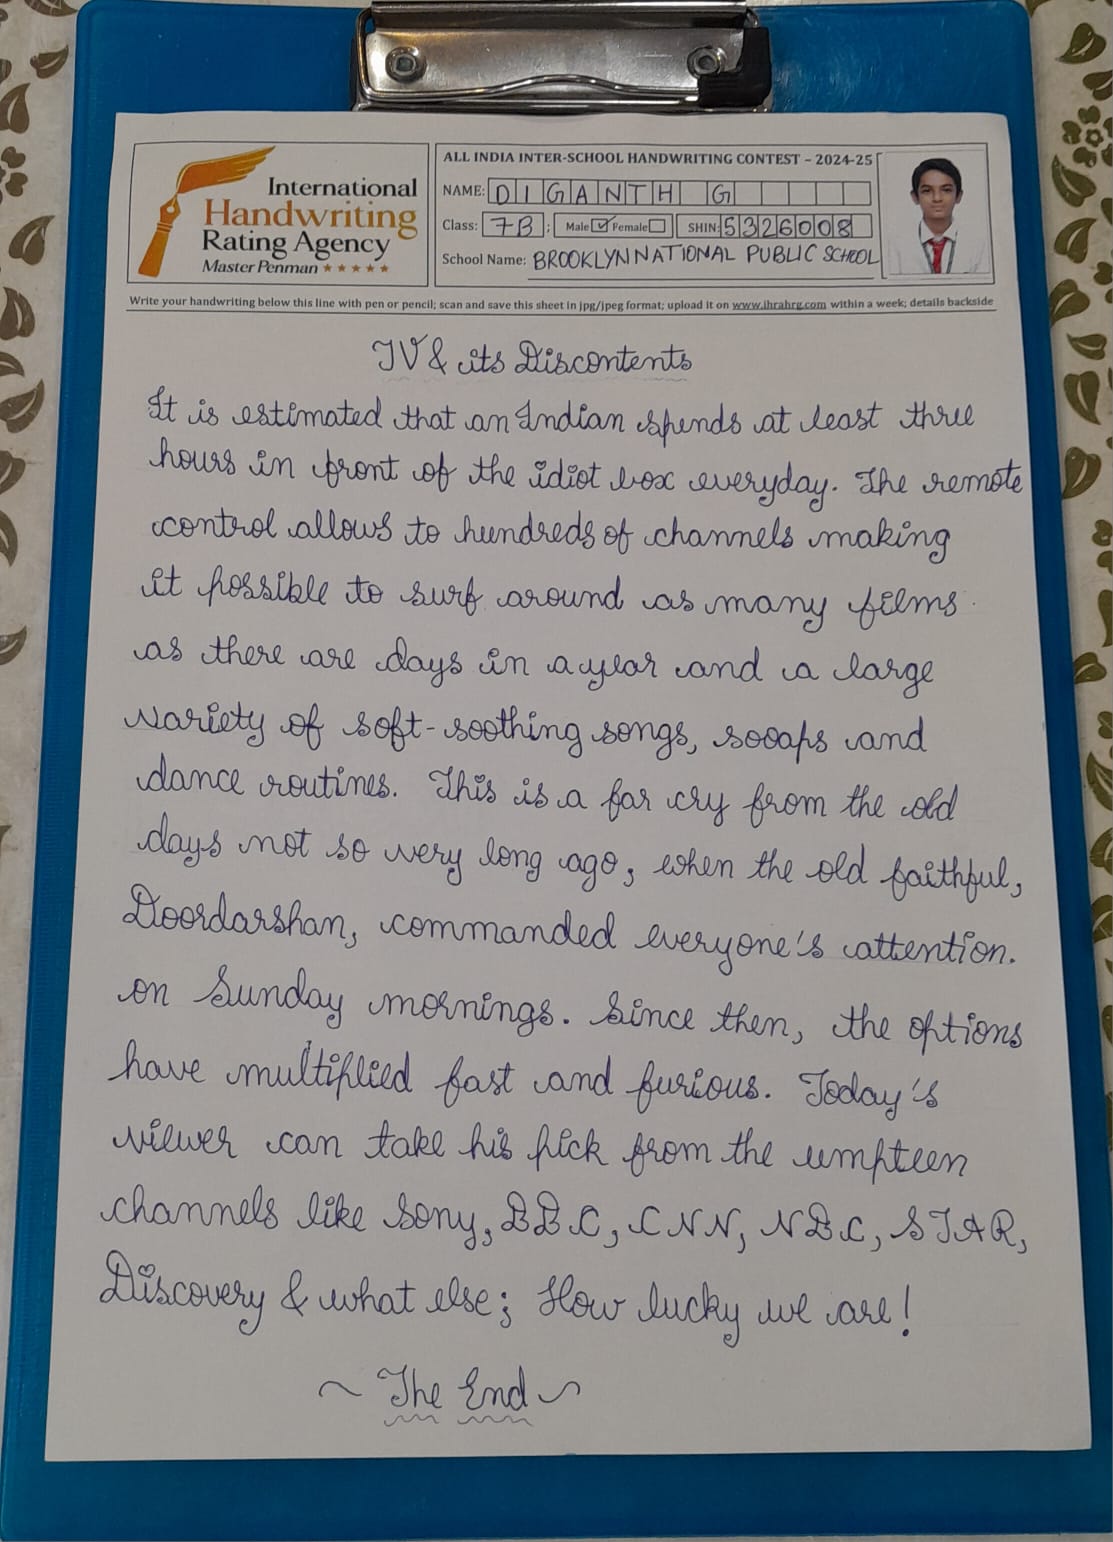 International
Handwriting
Rating Agency
Master Penman ★★★★★
ALL INDIA INTER-SCHOOL HANDWRITING CONTEST – 2024-25
NAME: DIGANTH G
Class: 7B ; Male ☑ Female ☐ SHIN: 5326008
School Name: BROOKLYN NATIONAL PUBLIC SCHOOL
Write your handwriting below this line with pen or pencil; scan and save this sheet in jpg/jpeg format; upload it on www.ihrahrg.com within a week; details backside
TV & its Discontents
It is estimated that an Indian spends at least three
hours in front of the idiot box everyday. The remote
control allows to hundreds of channels making
it possible to surf around as many films
as there are days in a year and a large
variety of soft-soothing songs, sooaps and
dance routines. This is a far cry from the old
days not so very long ago, when the old faithful,
Doordarshan, commanded everyone's attention.
on Sunday mornings. Since then, the options
have multiplied fast and furious. Today's
viewer can take his pick from the umpteen
channels like Sony, BBC, CNN, NBC, STAR,
Discovery & what else; How lucky we are!
~ The End ~